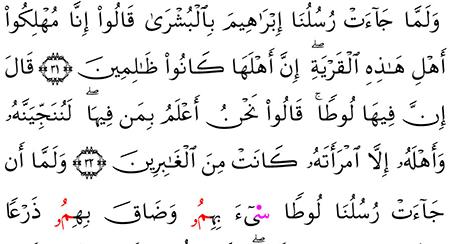 وَلَمَّا جَآءَتْ رُسُلُنَا إِبْرَٰهِيمَ بِالْبُشْرَىٰ قَالُوٓا۟ إِنَّا مُهْلِكُوٓا۟
أَهْلِ هَٰذِهِ الْقَرْيَةِ ۖ إِنَّ أَهْلَهَا كَانُوا۟ ظَٰلِمِينَ ۝٣١ قَالَ
إِنَّ فِيهَا لُوطًا ۚ قَالُوا۟ نَحْنُ أَعْلَمُ بِمَن فِيهَا ۖ لَنُنَجِّيَنَّهُۥ
وَأَهْلَهُۥٓ إِلَّا امْرَأَتَهُۥ كَانَتْ مِنَ الْغَٰبِرِينَ ۝٣٢ وَلَمَّآ أَن
جَآءَتْ رُسُلُنَا لُوطًا سِيٓءَ بِهِمُۥ وَضَاقَ بِهِمُۥ ذَرْعًا